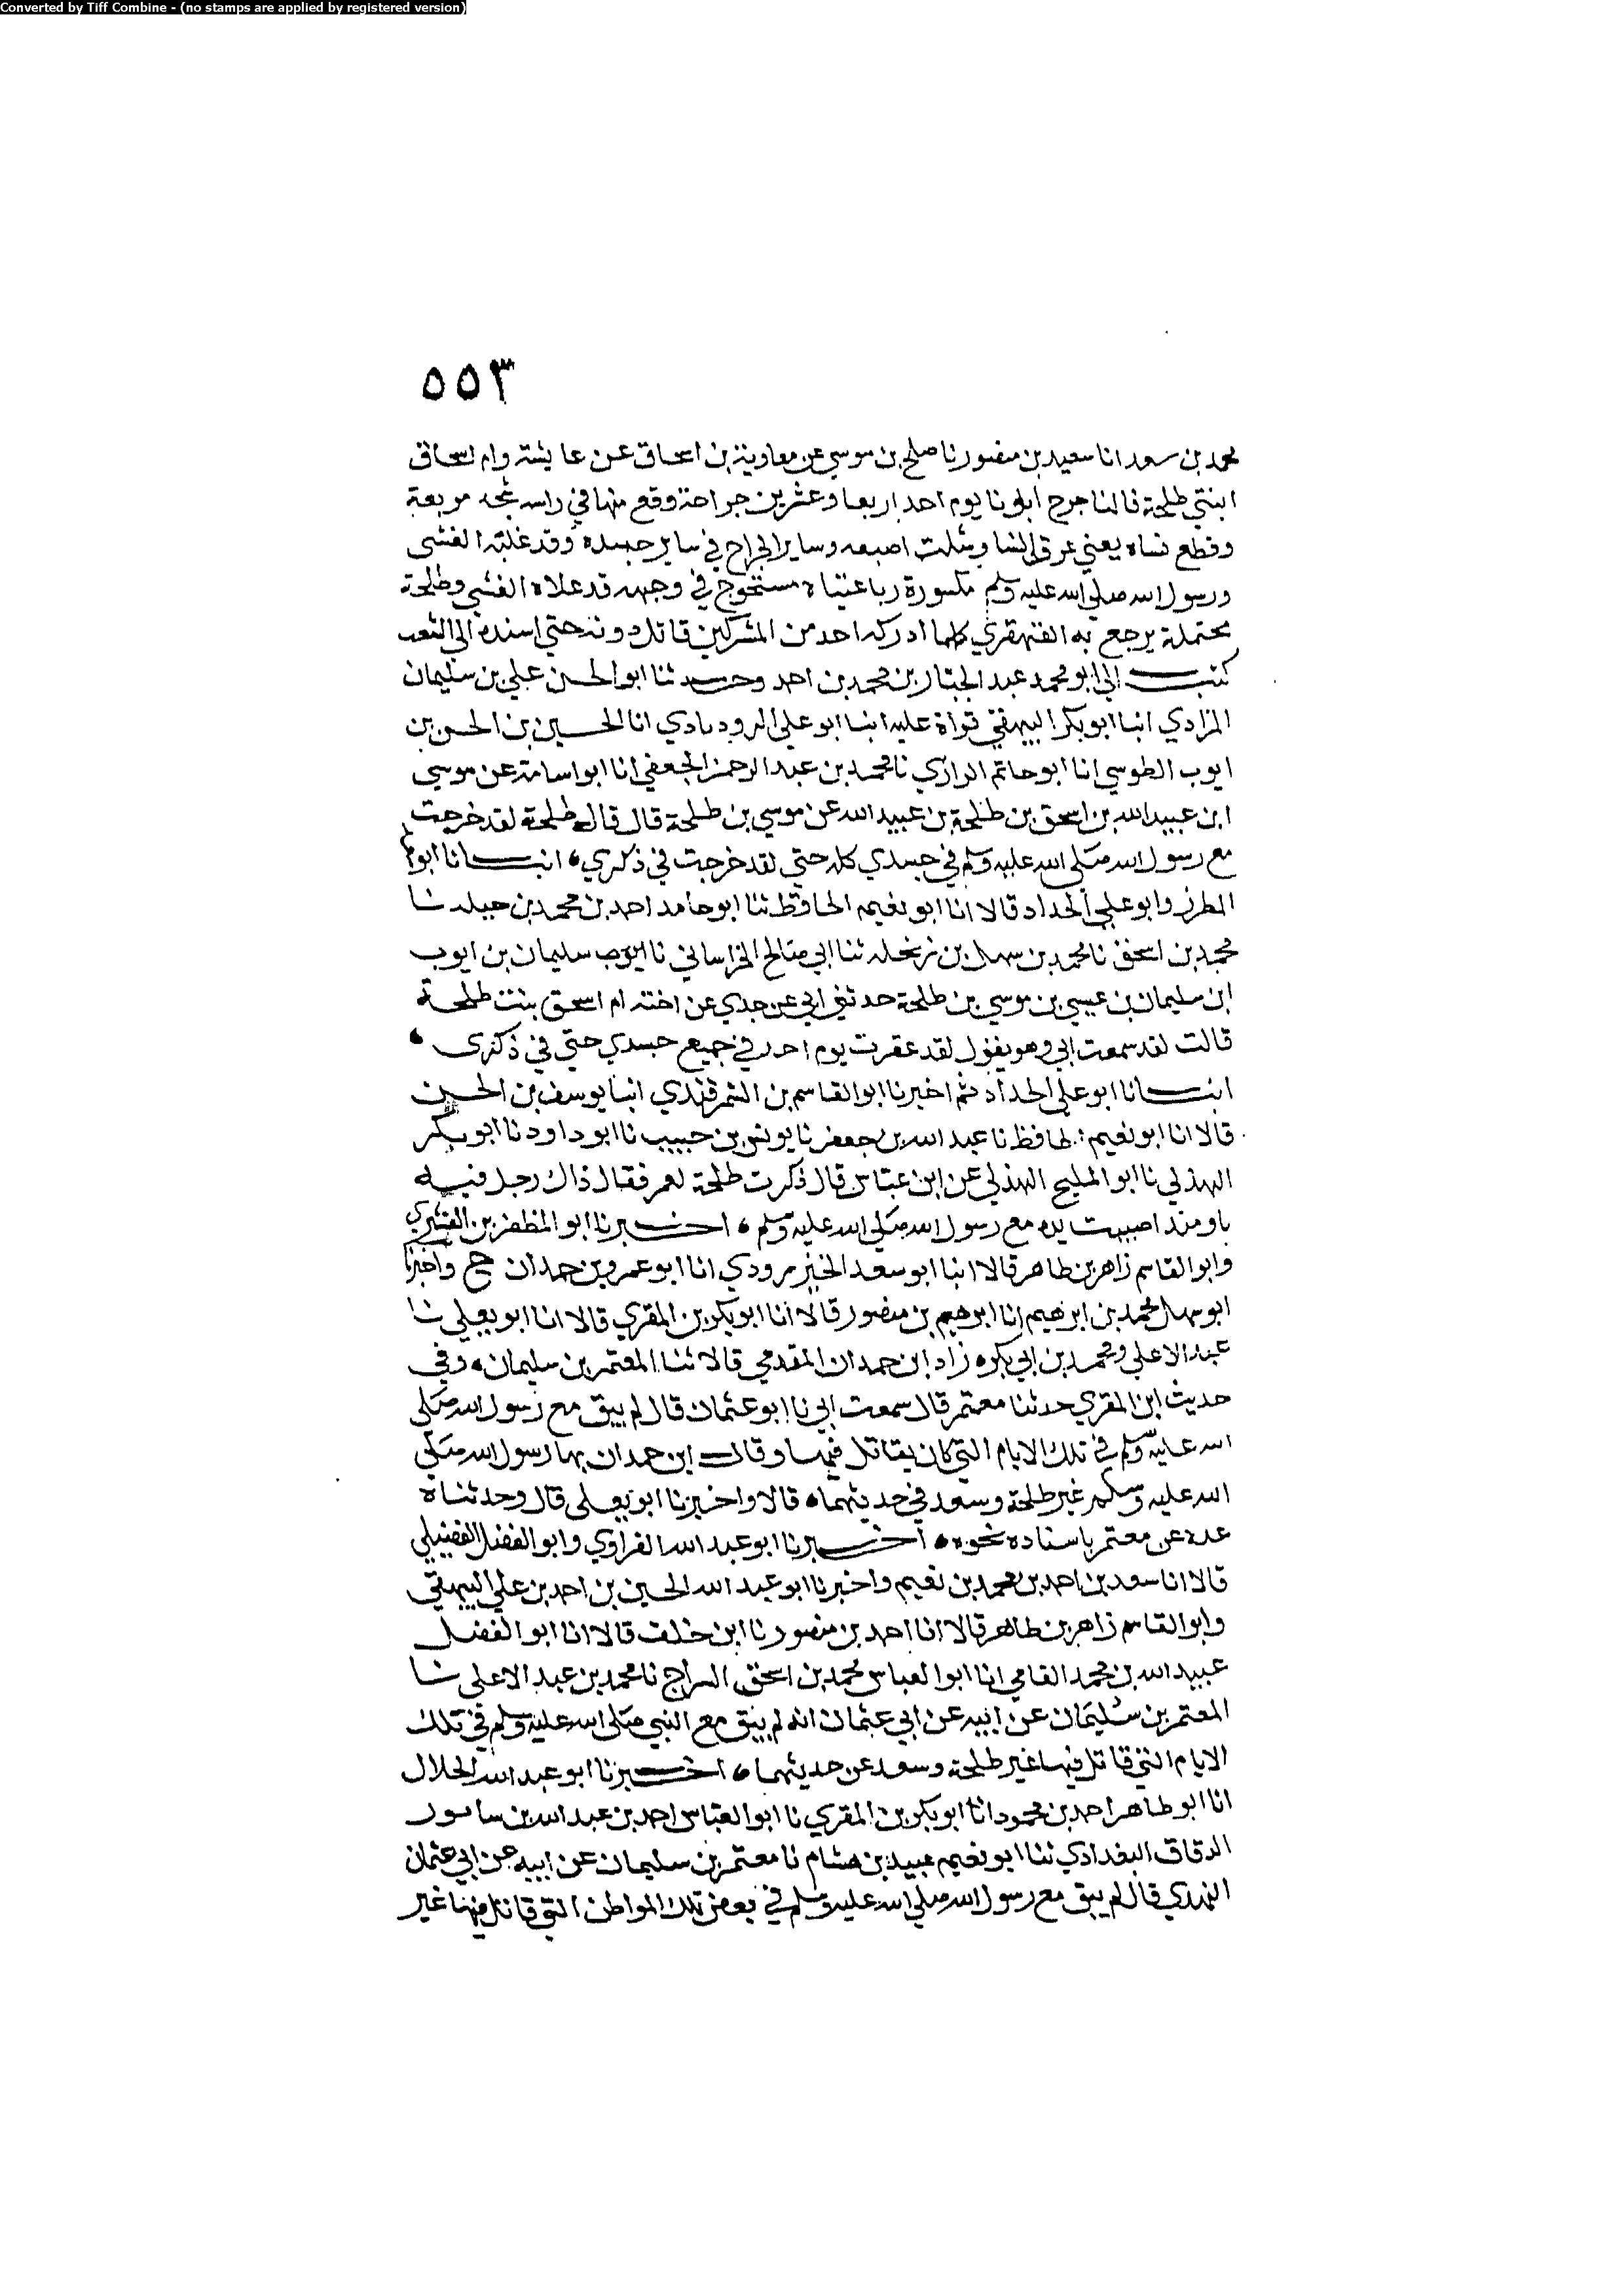 Converted by Tiff Combine - (no stamps are applied by registered version)
٥٥٣
محمد بن سعد انا سعيد بن منصور نا صلح بن موسي عن معاوية بن اسحاق عن عايشة وام اسحاق
ابنتي طلحة قالتا جرح ابونا يوم احد اربعا وعشرين جراحة وقع منها في راسه شجه مربعة
وقطع نساه يعني عرق النسا وشلت اصبعه وساير الجراح في ساير جسده وقد غلبته الغشى
ورسول الله صلى الله عليه وسلم مكسورة رباعيتاه في وجهه قد علاه الغشي وطلحة
محتملة يرجع به القهقري كلما ادركه احد من المشركين قاتل دونه حتي اسنده الي الشعب
كتب الي ابو محمد عبد الجبار بن محمد بن احمد وحدثنا ابو الحسن علي بن سليمان
المرادي انبا ابو بكر البيهقي قراة عليه انبا ابو علي الرودبادي انا الحسين بن الحسن بن
ايوب الطوسي انا ابو حاتم الرازي نا محمد بن عبد الرحمن الجعفي انا ابو اسامة عن موسي
ابن عبيد الله بن اسحق بن طلحة بن عبيد الله عن موسي بن طلحة قال قال طلحة لقد خرجت
مع رسول الله صلى الله عليه وسلم في جسدي كله حتي لقد خرجت في ذكري انبانا ابو
المطرز وابو علي الحداد قالا انا ابو نعيم الحافظ ثنا ابو حامد احمد بن محمد بن جبله نا
محمد بن اسحق نا محمد بن سهل بن زنجله ثنا ابي صالح الخراساني نا سليمان بن ايوب
ابن سليمان بن عيسي بن موسي بن طلحة حدثني ابي عن جدي عن اخته ام اسحق بنت طلحة
قالت لقد سمعت ابي وهو يقول لقد عقرت يوم احد في جميع جسدي حتي في ذكرى
انبانا ابو علي الحداد ثم اخبرنا ابو القاسم بن السمرقندي انبا يوسف بن الحسين
قالا انا ابو نعيم الحافظ نا عبد الله بن جعفر نا يونس بن حبيب نا ابو داود نا ابو بكر
الهذلي نا ابو المليح الهذلي عن ابن عباس قال ذكرت طلحة لعمر فقال ذاك رجل فيه
باو منذ اصيبت يده مع رسول الله صلى الله عليه وسلم اخبرنا ابو المظفر بن القشيري
وابو القاسم زاهر بن طاهر قالا انبا ابو سعد الخنزرودي انا ابو عمرو بن حمدان ح واخبرنا
ابو سهل محمد بن ابرهيم انا ابرهيم بن منصور قالا انا ابو بكر بن المقري قالا انا ابو يعلي نا
عبد الاعلي ومحمد بن ابي بكر زاد ابن حمدان المقدمي قالا ثنا المعتمر بن سليمان وفي
حديث ابن المقري حدثنا معتمر قال سمعت ابي نا ابو عثمان قال لم يبق مع رسول الله صلى
الله عليه وسلم في تلك الايام التي كان يقاتل فيها وقال ابن حمدان بها رسول الله صلى
الله عليه وسلم غير طلحة وسعد في حديثهما قالا واخبرنا ابو يعلى قال وحدثناه
عده عن معتمر باسناده نحوه اخبرنا ابو عبد الله الفراوي وابو الفضل الفضيلي
قالا انا سعد بن احمد بن محمد بن نعيم واخبرنا ابو عبد الله الحسين بن احمد بن علي البيهقي
وابو القاسم زاهر بن طاهر قالا انا احمد بن منصور نا ابن خلف قالا انا ابو الفضل
عبيد الله بن محمد الفامي انا ابو العباس محمد بن اسحق السراج نا محمد بن عبد الاعلى نا
المعتمر بن سليمان عن ابيه عن ابي عثمان انه لم يبق مع النبي صلى الله عليه وسلم في تلك
الايام التي قاتل فيها غير طلحة وسعد عن حديثهما اخبرنا ابو عبد الله الخلال
انا ابو طاهر احمد بن محمود انا ابو بكر بن المقري نا ابو العباس احمد بن عبد الله بن سابور
الدقاق البغدادي ثنا ابو نعيم عبيد بن هشام نا معتمر بن سليمان عن ابيه عن ابي عثمان
النهدي قال لم يبق مع رسول الله صلي الله عليه وسلم في بعض تلك المواطن التي قاتل فيها غير